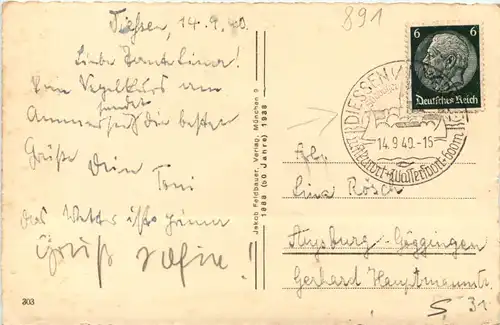 Diessen, 14.9.40.
891
Liebe Tante Lina!
Vom Segelkurs am
Ammersee sendet die besten
Grüße Dein
Toni
das Wetter ist prima
Gruß
6 6
Deutsches Reich
DIESSEN
14.9.40.-15
Luftkurort
Jakob Feldbauer, Verlag, München 9
1888 (50 Jahre) 1938
Lina Rösch
Augsburg-Göggingen
Gerhard Hauptmannstr.
31
303